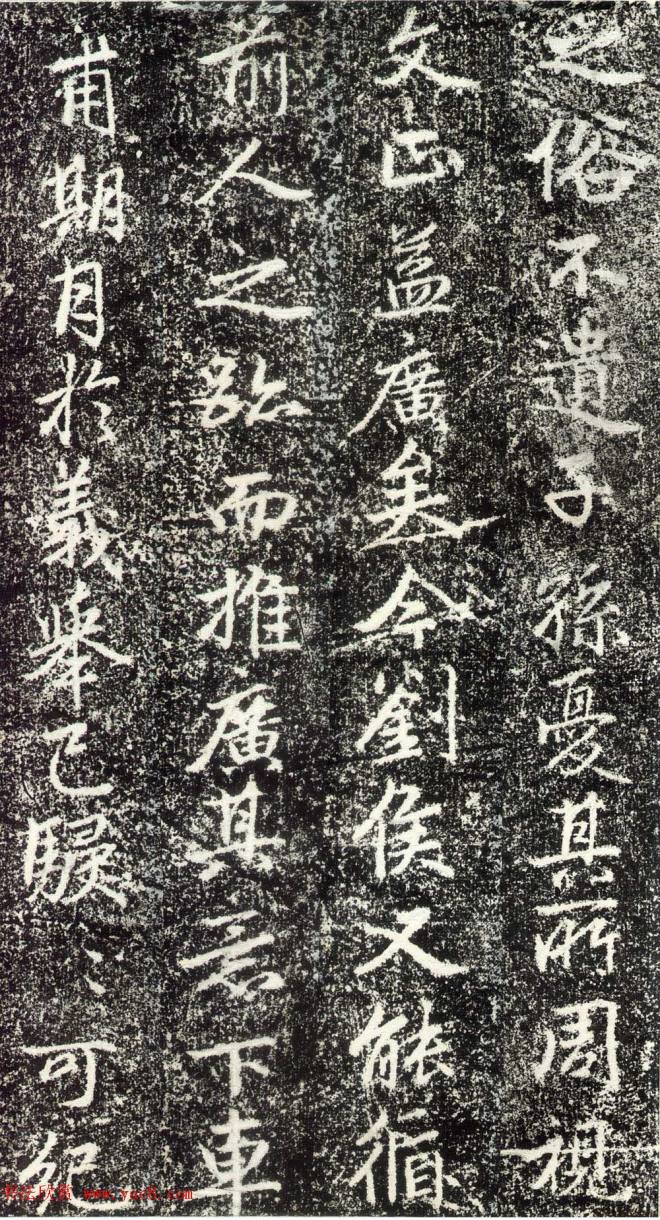 之俗不遗子孫憂其所周視
文正益廣矣今劉侯又能循
前人之跡而推廣其意下車
甫期月於義舉已駸〻可紀
书法欣赏 www.yac8.com